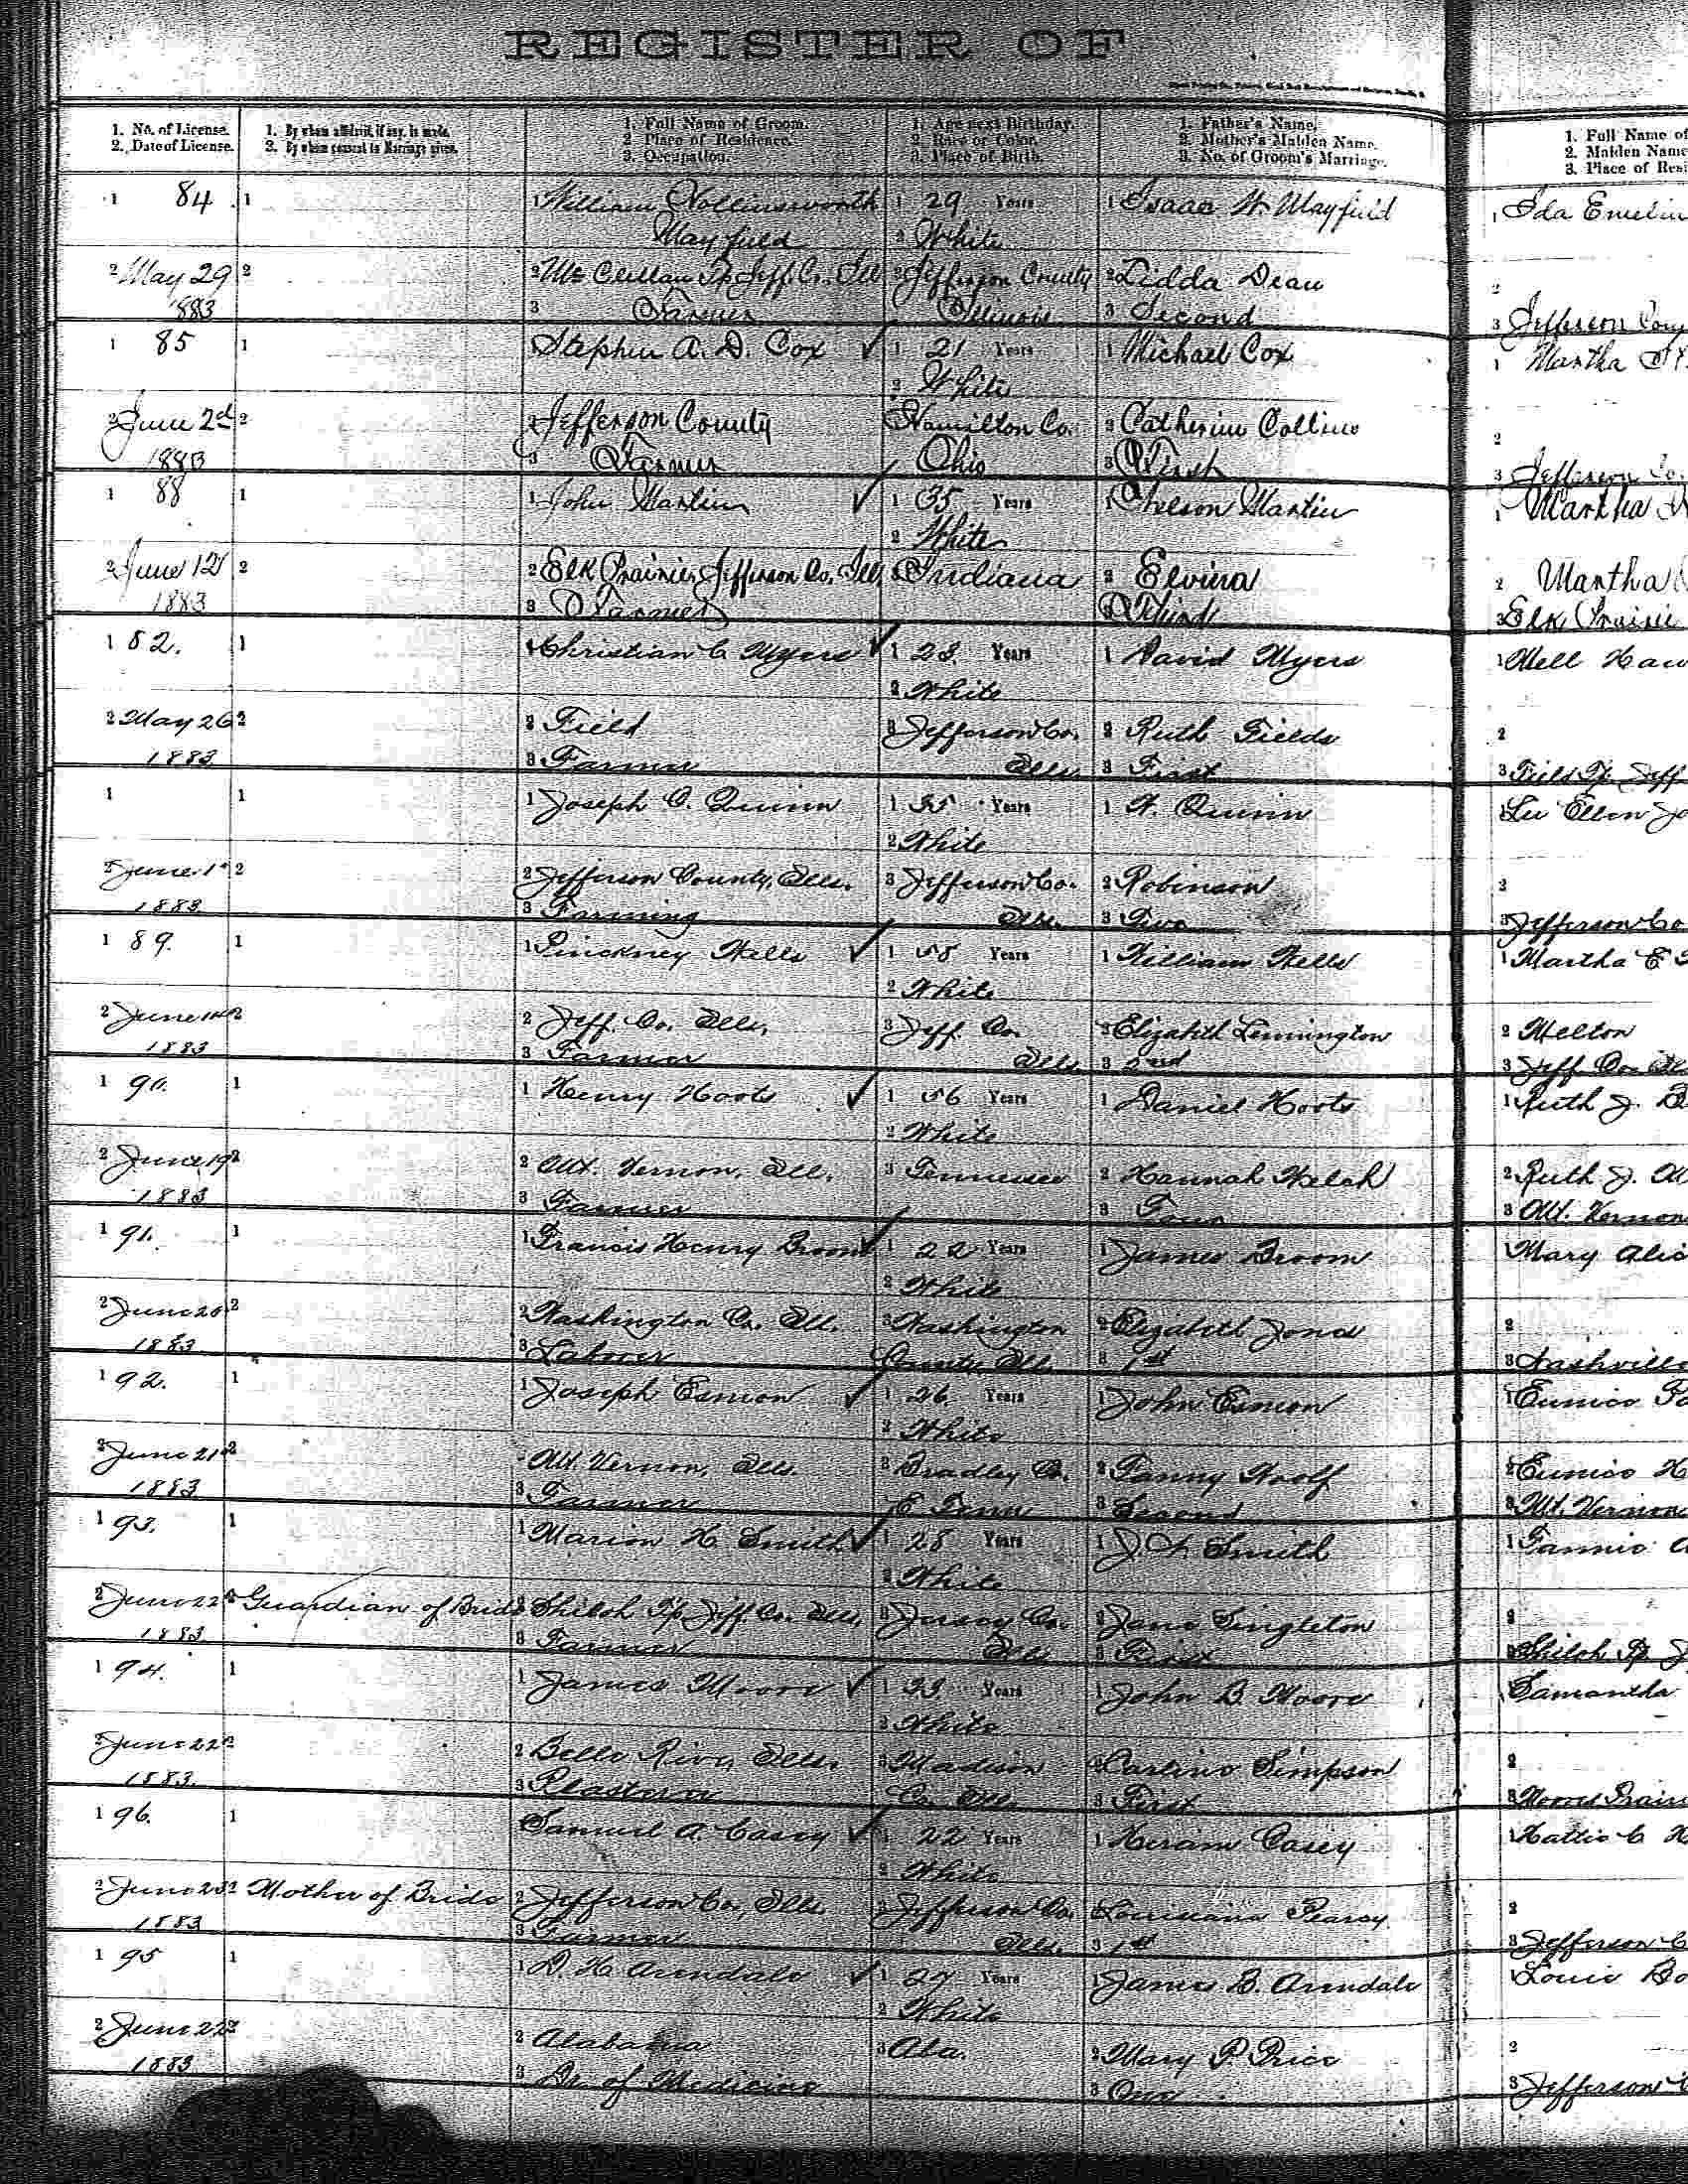 REGISTER OF
1. No. of License. 1. By whom affidavit, if any, is made. 1. Full Name of Groom. 1. Age next Birthday. 1. Father's Name. 1. Full Name of
2. Date of License. 2. By whom consent to Marriage given. 2. Place of Residence. 2. Race or Color. 2. Mother's Maiden Name. 2. Maiden Name
3. Occupation. 3. Place of Birth. 3. No. of Groom's Marriage. 3. Place of Resi
1 84 1 1 William Hollinsworth 1 29 Years 1 Isaac W. Mayfield 1 Ida Emelin
Mayfield 2 White
2 May 29 2 2 Mc Clellan Tp. Jeff. Co. Ill 3 Jefferson County 2 Lidda Dean 2
1883 3 Farmer Illinois 3 Second 3 Jefferson Coun
1 85 1 Stephen A. D. Cox 1 21 Years 1 Michael Cox 1 Martha
2 White
2 June 2d 2 2 Jefferson County Hamilton Co. 2 Catherine Collins 2
1883 3 Farmer Ohio 3 First 3 Jefferson Co.
1 88 1 1 John Martin 1 35 Years 1 Nelson Martin 1 Martha
2 White
2 June 12 2 2 Elk Prairie, Jefferson Co. Ill 3 Indiana 2 Elvira 2 Martha
1883 3 Farmer 3 Third 3 Elk Prairie
1 82. 1 1 Christian C Myers 1 23. Years 1 David Myers 1 Nell Haw
2 White
2 May 26 2 2 Field 3 Jefferson Co. 2 Ruth Fields 2
1883 3 Farmer Ills. 3 First 3 Field Tp. Jeff
1 1 1 Joseph C. Quinn 1 35 Years 1 W. Quinn 1 Lu Ellen Jo
2 White
2 June 1st 2 2 Jefferson County, Ills. 3 Jefferson Co. 2 Robinson 2
1883 3 Farming Ills. 3 Two 3 Jefferson Co
1 89. 1 1 Pinckney Wells 1 58 Years 1 William Wells 1 Martha E
2 White
2 June 14 2 2 Jeff. Co. Ills. 3 Jeff. Co. 2 Elizabeth Lemington 2 Melton
1883 3 Farmer Ills 3 2nd 3 Jeff Co. Ill
1 90. 1 1 Henry Hoots 1 56 Years 1 Daniel Hoots 1 Ruth J. B
2 White
2 June 19 2 2 Mt. Vernon, Ill. 3 Tennessee 2 Hannah Welch 2 Ruth J.
1883 3 Farmer 3 Four 3 Mt. Vernon
1 91. 1 1 Francis Henry Broom 1 22 Years 1 James Broom Mary Alic
2 White
2 June 20 2 2 Washington Co. Ill. 3 Washington 2 Elizabeth Jones 2
1883 3 Laborer County, Ill. 3 1st 3 Nashville
1 92. 1 1 Joseph Esmon 1 26 Years 1 John Esmon 1 Eunice
2 White
2 June 21 2 Mt. Vernon, Ills. 3 Bradley Co. 2 Fanny Woolf 2 Eunice H
1883 3 Farmer E. Tenn 3 Second 3 Mt. Vernon
1 93. 1 1 Marion H. Smith 1 28 Years 1 J. W. Smith 1 Fannie
2 White
2 June 22 2 Guardian of Bride 2 Shiloh Tp Jeff. Co. Ills. 3 Jersey Co. 2 Jane Singleton 2
1883 3 Farmer Ills 3 First 3 Shiloh Tp. J
1 94. 1 1 James Moore 1 23 Years 1 John B. Moore Samantha
2 White
2 June 22 2 2 Belle Rive, Ills. 3 Madison 2 Simpson 2
1883. 3 Plasterer Co. Ills. 3 First 3 Moores Prairi
1 96. 1 Samuel A. Casey 1 22 Years 1 Hiram Casey 1 Hattie C
2 White
2 June 23 2 Mother of Bride 2 Jefferson Co., Ills. 3 Jefferson Co. 2 Louisiana Pearcy 2
1883 3 Farmer Ills. 3 1st 3 Jefferson C
1 95 1 1 D. H. Arendale 1 27 Years 1 James B. Arendale 1 Louie Bo
2 White
2 June 22 2 Alabama 3 Ala. 2 Mary P. Price 2
1883 3 Dr. of Medicine 3 One 3 Jefferson C